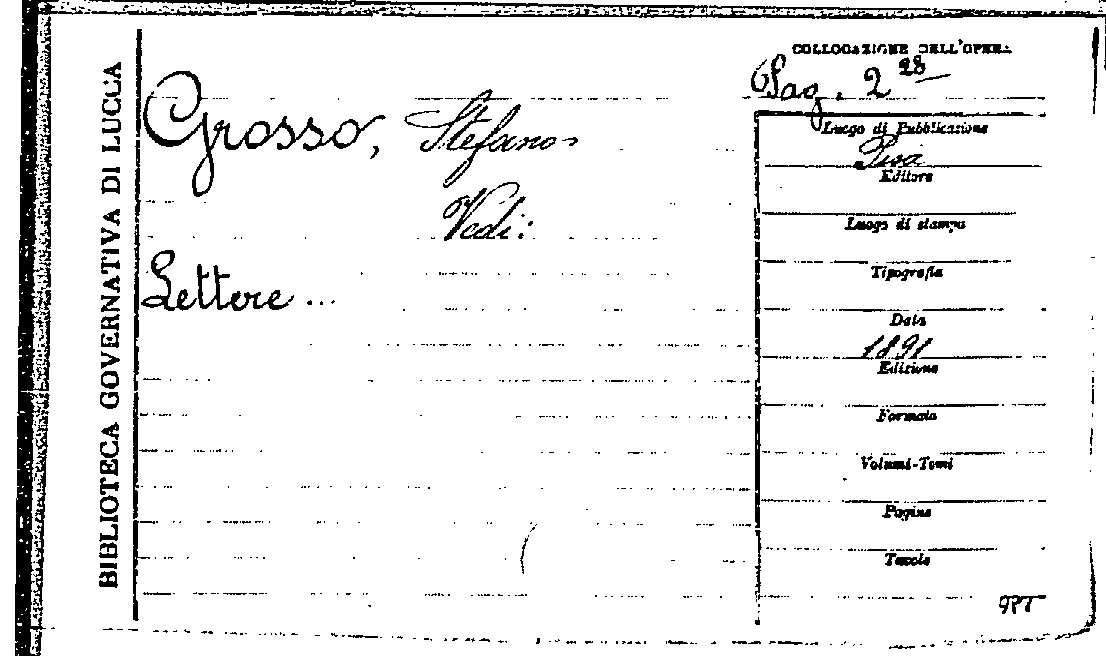 BIBLIOTECA GOVERNATIVA DI LUCCA
COLLOCAZIONE DELL'OPERA
2 28
Grosso, Stefano
Vedi:
Lettere ...
Luogo di Pubblicazione
Pisa
Editore
Luogo di stampa
Tipografia
Data
1891
Edizione
Formato
Volumi-Tomi
Pagine
Tavole